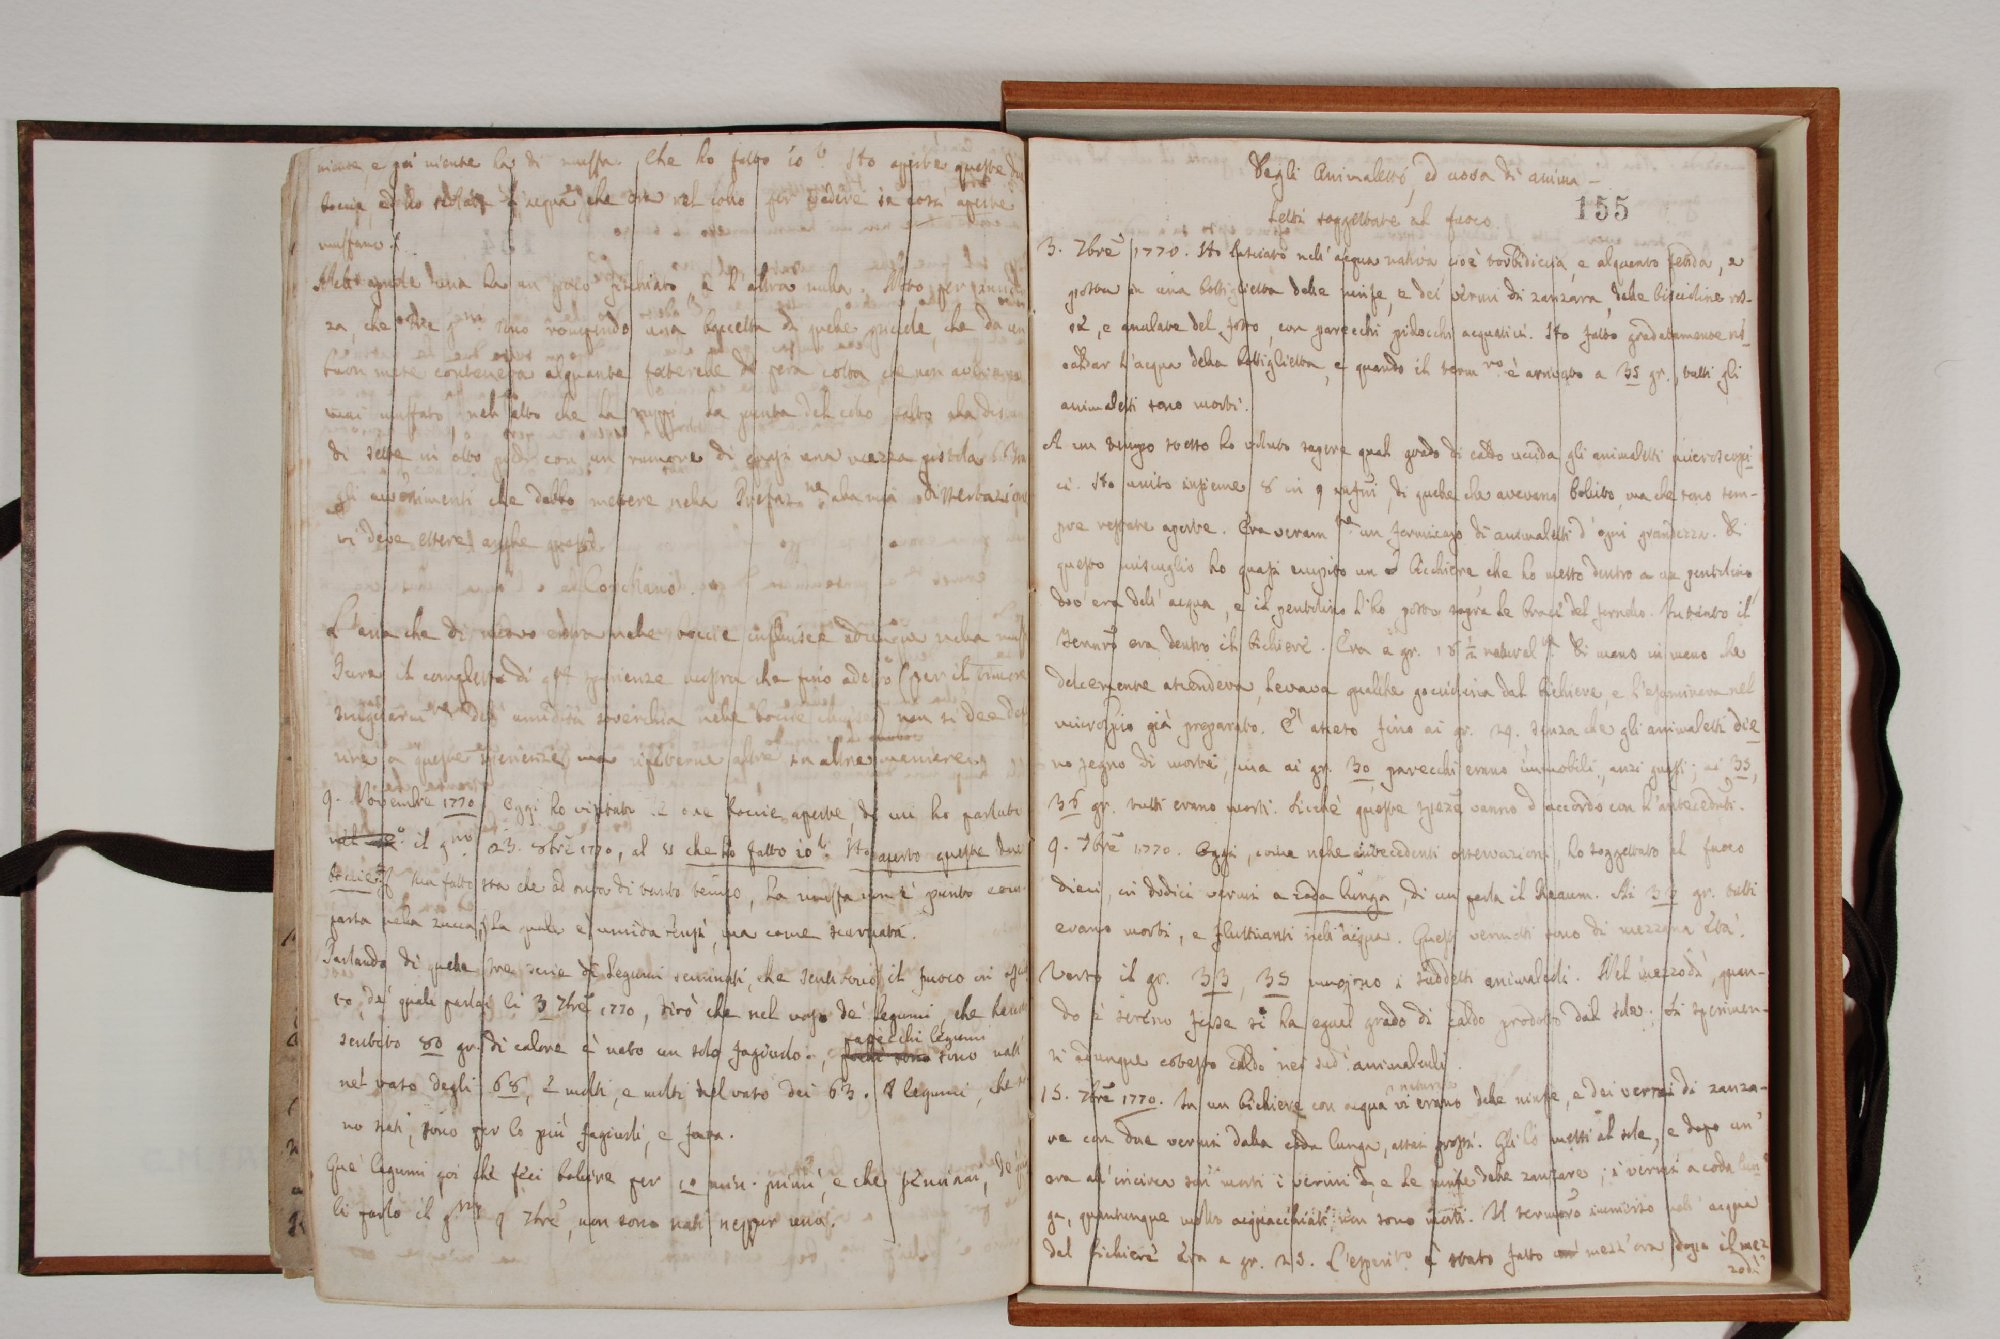 niente, e poi niente ha di muffa. Che ho fatto io? Ho aperte queste due
boccie, ed ho l'acqua, che era nel collo per vedere se così aperte
muffano.
una ha un poco, e l'altra nulla.
za, che sono rompendo una boccetta di quelle, che da un
buon mese conteneva alquante fetterelle di pera cotta, che non aveano
mai muffato, nell'atto che la ruppi, la punta del collo saltò alla distan
di sette in otto piedi con un rumore di quasi una mezza pistola. Fra
gli avvenimenti che debbo mettere nella Prefaz.ne alla mia dissertazione
vi deve essere anche questo.
Corollario
L'aria che di nuovo entra nelle boccie influisce adunque nella muf
Pure il complesso di q.te sperienze mostra che fino adesso (per il timore
singolarm.te dell'umidità soverchia nelle boccie chiuse) non si dee
rire a queste sperienze, ma rifarne altre in altre maniere.
9. Novembre 1770. Oggi ho visitato le due boccie aperte, di cui ho parlato
il g.no 23. 8bre 1770, al §§ che ho fatto io? Ho aperto queste due
boccie. Il fatto sta che ad onta di tanto tempo, la muffa non è punto com-
parsa nella zucca, la quale è umida sì, ma come
Parlando di quelle tre serie di legumi seminati, che sentirono il fuoco
to, de' quali parlai li 3 7bre 1770, dirò che nel vaso de' legumi, che hanno
sentito 80 gr. di calore è nato un solo fagiuolo, parecchi legumi sono nati
nel vaso degli 68, e molti, e molti nel vaso dei 63. I legumi, che
no nati, sono per lo più fagiuoli, e fava.
Que' legumi poi che feci bollire per 10 min. primi, e che seminai, de' qua
li parlo il g.no 9 7bre, non sono nati neppur uno.
Degli Animaletti, ed uova di anima-
letti soggettate al fuoco
155
3. 7bre 1770. Ho lasciato nell'acqua nativa cioè torbidiccia, e alquanto fetida, e
posta in una bottiglietta delle ninfe, e dei vermi di zanzara, delle biscioline ros-
se, e anulate del fosso, con parecchi pidocchi acquatici. Ho fatto gradatamente ris-
caldar l'acqua della bottiglietta, e quando il term.ro è arrivato a 35 gr., tutti gli
animaletti sono morti.
A un tempo stesso ho voluto sapere qual grado di caldo uccida gli animaletti microscopi-
ci. Ho unito insieme 8 in 9 infus.i, di quelle che avevano bollito, ma che sono sem-
pre restate aperte. Era veram.te un formicajo di animaletti d'ogni grandezza. Di
questo miscuglio ho quasi empito un bicchiere che ho messo dentro a un pentolino
dov'era dell'acqua, e il pentolino l'ho posto sopra le braci del fornello. Intanto il
Termro era dentro il bichiere. Era a gr. 18 1/2 natural.te. Di mano in mano che
dolcemente ascendeva, levava qualche gocciolina dal bichiere, e l'esaminava nel
microspio già preparato. È asceso fino ai gr. 29. senza che gli animaletti die
no segno di morte, ma ai gr. 30 parecchi erano immobili, anzi guasti; ai 35,
36 gr. tutti erano morti. Sicchè queste spze vanno d'accordo con l'antecedenti.
9. 7bre 1770. Oggi, come nelle antecedenti osservazioni, ho soggettato al fuoco
dieci, in dodici vermi a coda lunga, di cui parla il Reaum. Ai 33 gr. tutti
erano morti, e fluttuanti nell'acqua. Questi vermetti sono di mezzana età.
Verso il gr. 33, 35 muojono i suddetti animaletti. Nel mezzodì, quan-
do è sereno forse si ha egual grado di caldo prodotto dal sole. Si sperimen-
ti adunque cotesto caldo nei sud.i animaluli.
15. 7bre 1770. In un bichiere con acqua naturale vi erano delle ninfe, e dei vermi di zanza-
re con due vermi dalla coda lunga, assai grossi. Gli ho messi al sole, e dopo un'
ora all'incirca son morti i vermi, e le ninfe delle zanzare; i vermi a coda lun
ga, quantunque molto acquacchiati non sono morti. Il termro immerso nell'acqua
del bichiere era a gr. 25. L'esperi.to è stato fatto mezz'ora dopo il mez
zodì